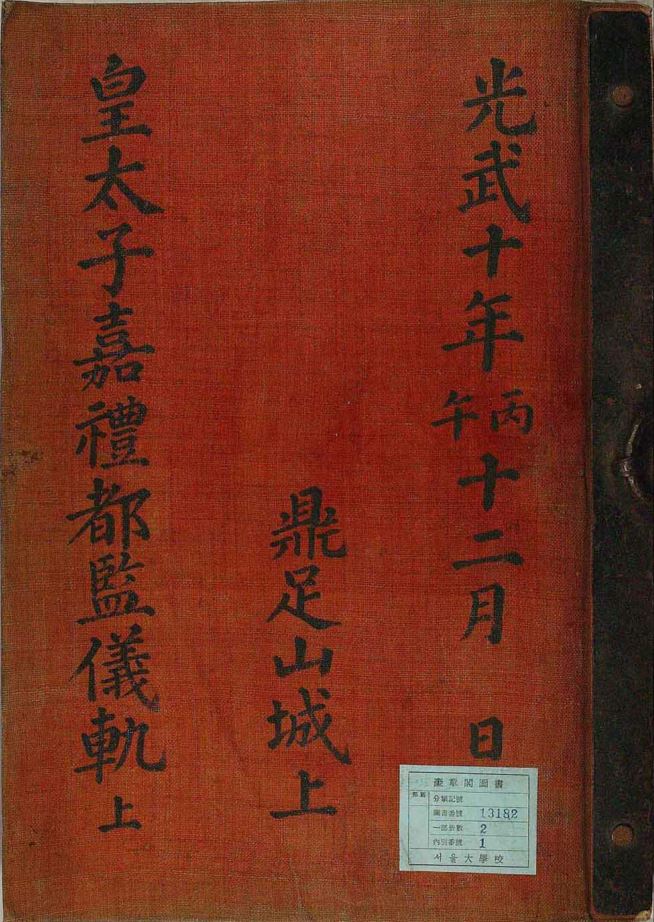 光武十年丙午十二月 日
鼎足山城上
皇太子嘉禮都監儀軌 上
奎章閣圖書
部類
分類記號
圖書番號 13182
一部冊數 2
內別番號 1
서울大學校